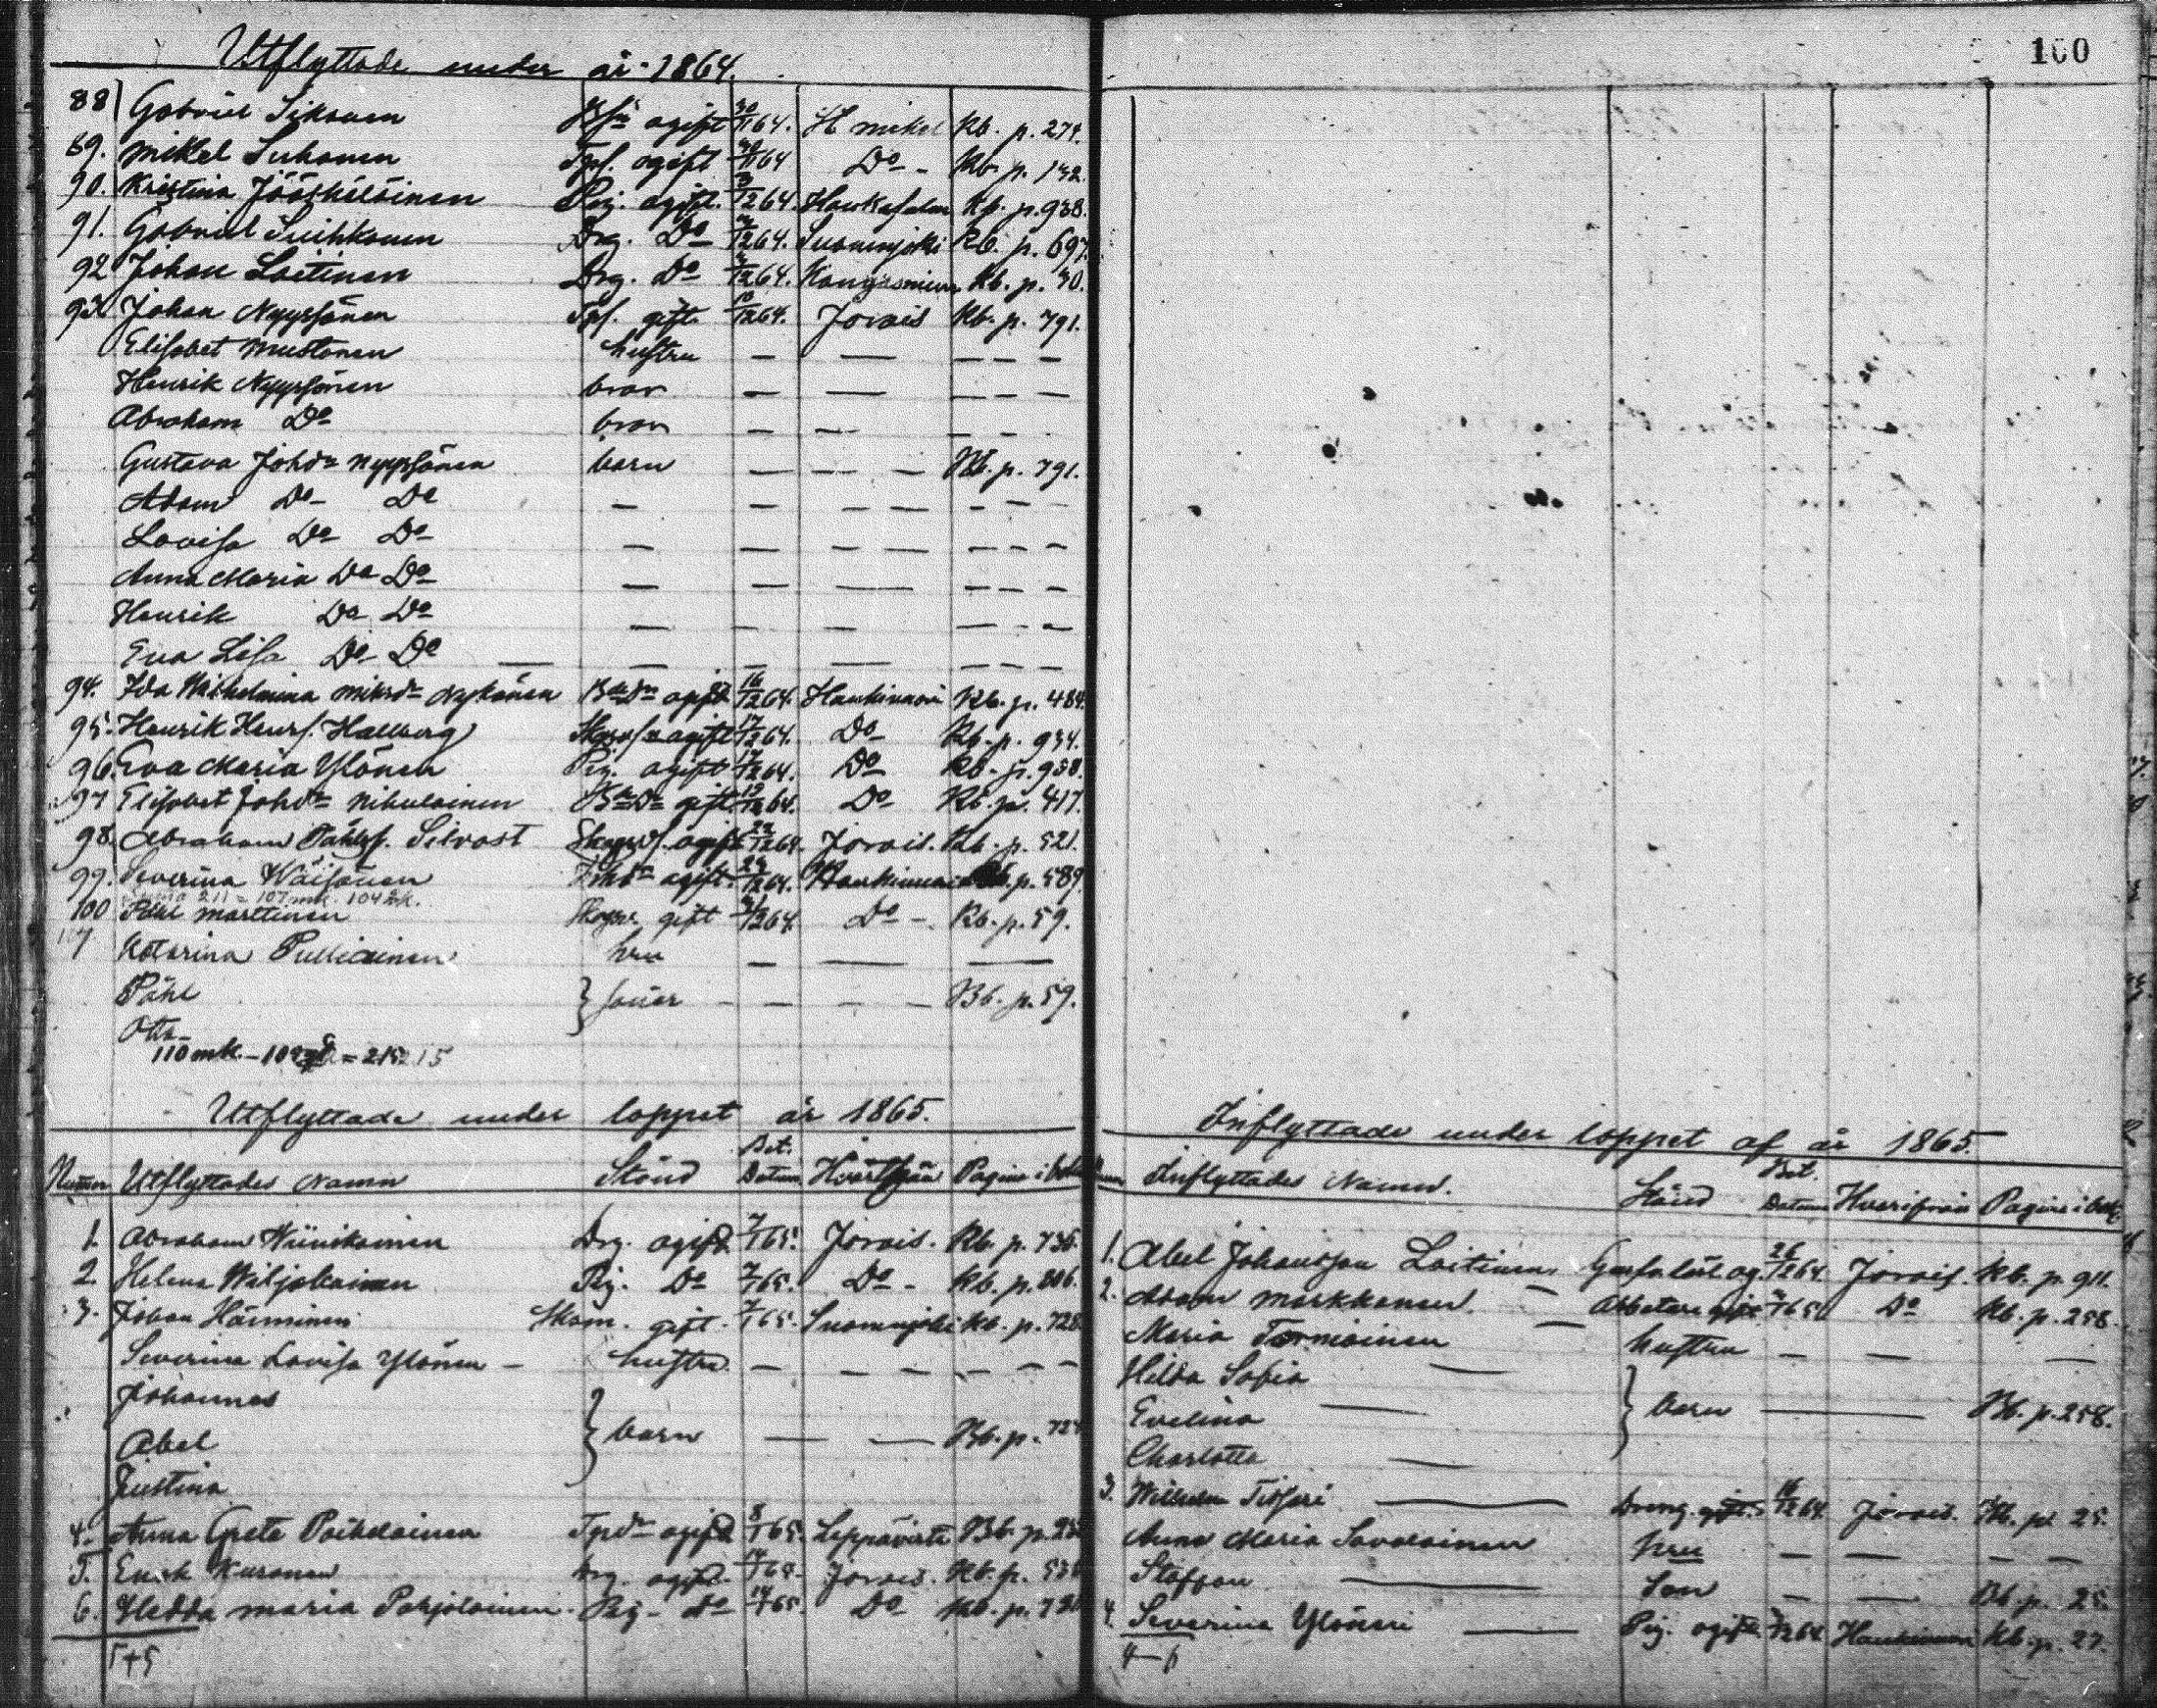 Utflyttade under år 1864.
88 Gabriel Siksuen ogift 30/11 64. St mikel Kb. p. 274.
89. Mikel Suhonen Tps. ogift 30/11 64 Do - Kb. p. 132.
90. Kristina Jääskeläinen Pig. ogift. 3/12 64. Haukasalmi Kb. p. 938.
91. Gabriel Suihkonen Drg. Do 12 64. Suonenjoki Kb. p. 697.
92 Johan Laitinen Drg. Do 12 64. Kangasniemi Kb. p. 30.
93 Johan Nyyssönen Tps. gift. 10/12 64. Jorois Kb. p. 791.
Elisabet Mustonen hustru — — — — —
Henrik Nyyssönen bror — — — — —
Abraham Do bror — — — —
Gustava Johdr Nyyssönen barn — — — Kb. p. 791.
Adam Do Do — — — — — — —
Lovisa Do Do — — — — — — —
Anna Maria Do Do — — — — — —
Henrik Do Do — — — — — —
Eva Lisa Do Do — — — — — — —
94. Ida Wilhelmina Miksdr Nykänen ogift 16/12 64. Haukivuori Kb. p. 484.
95. Henrik Henrs. Hallberg ogift 17/12 64. Do Kb. p. 934.
96. Eva Maria Ylönen Pig. ogift 17/12 64. Do Kb. p. 950.
97 Elisabet Johdr Nikulainen gift. 19/12 64. Do Kb. p. 417.
98. Abraham Påhlss. Silvast ogift 22/12 64. Jorois. Kb. p. 521.
99. Severina Wäisänen ogift. 12 64. Haukivuori Kb. p. 589
211 = 107 mk. 104 qk.
100 Påhl Marttinen gift 31/12 64. Do -. Kb. p. 59.
Katarina Pulliainen hru — — —
Påhl } söner — — — — Bb. p. 59.
Otto
110 mk. - 105 = 215 215
Utflyttade under loppet år 1865.
Numer Utflyttades Namn Stånd Bet. Datum Hvartifrån Pagina i bok
1. Abraham Wiinikainen Drg. ogift 7/1 65. Jorois. Kb. p. 736.
2. Helena Wiljakainen Pig. Do 7/1 65. Do - Kb. p. 806.
3. Johan Hänninen Skom. gift. 7/1 65. Suonenjoki Kb. p. 728
Severina Lovisa Ylönen — hustru. — — — — — —
Johannes
Abel } barn — — Bb. p. 724
Justina
4. Anna Greta Poikolainen Tpdr ogift 8/1 65. Leppävirta Bb. p. 25
5. Enok Kuronen Drg. ogift. 14/1 65. Jorois. Kb. p. 531
6. Hedda Maria Pohjolainen. Pig - Do 14/1 65. Do Kb. p. 720
5+5
100
Inflyttade under loppet af år 1865.
Inflyttades Namn. Stånd Bet. Datum Hvarifrån Pagina i bok.
1. Abel Johansson Laitinen. og. 26/12 64. Jorois. Kb. p. 911.
2. Adam Markkanen. — Arbetare gift 1 65. Do Kb. p. 258.
Maria Tarmiainen — hustru — — —
Hilda Sofia —
Evelina — } barn — Bb. p. 258.
Charlotta —
3. Wilhelm Tissari — Dreng. gift. 16/12 64. Jorois. Kb. p. 25.
Anna Maria Savolainen hru — — — —
Staffan — Son — — Bb. p. 25.
4. Severina Ylönen — Pig. ogift. 12 64. Haukivuori Kb. p. 27.
4—6